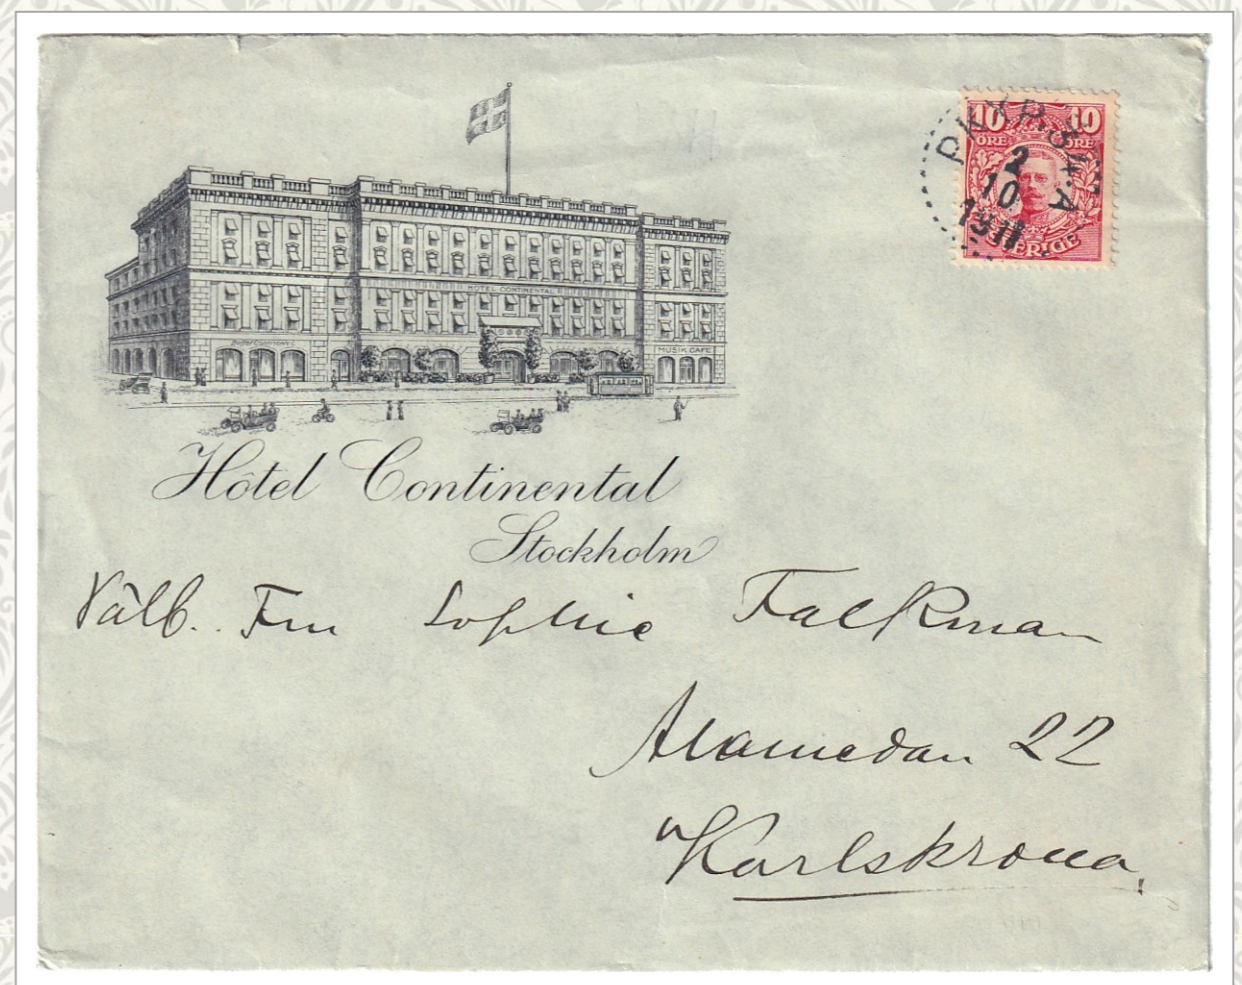 10 10
ÖRE ÖRE
SVERIGE
PKXP. 34. A
2
10
1911
HOTEL CONTINENTAL
MUSIK CAFE
Hôtel Continental
Stockholm
Välb. Fru Sophie Falkman
Alamedan 22
Karlskrona.